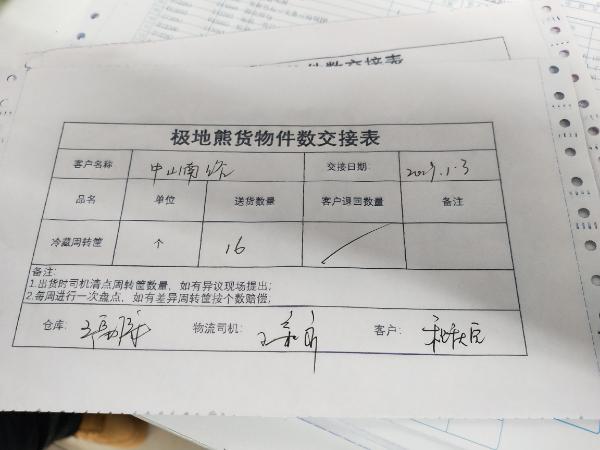 极地熊货物件数交接表
客户名称 中山南路 交接日期:
品名 单位 送货数量 客户退回数量 备注
冷藏周转筐 个 16
备注:
1.出货时司机清点周转筐数量，如有异议现场提出;
2.每周进行一次盘点，如有差异周转筐按个数赔偿;
仓库: 物流司机: 客户: